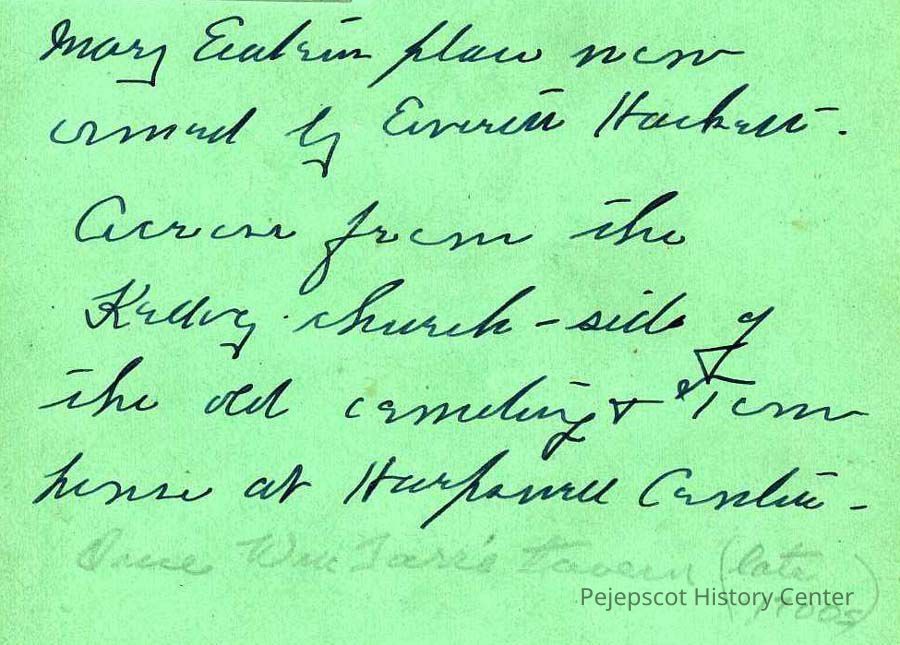 Mary Eastman place now
owned by Everett Hackett.
Across from the
Kellog church - side of
the old cemetery & Town
house at Harpswell Center -
Once Wm Tarr's tavern (late
1700s)
Pejepscot History Center